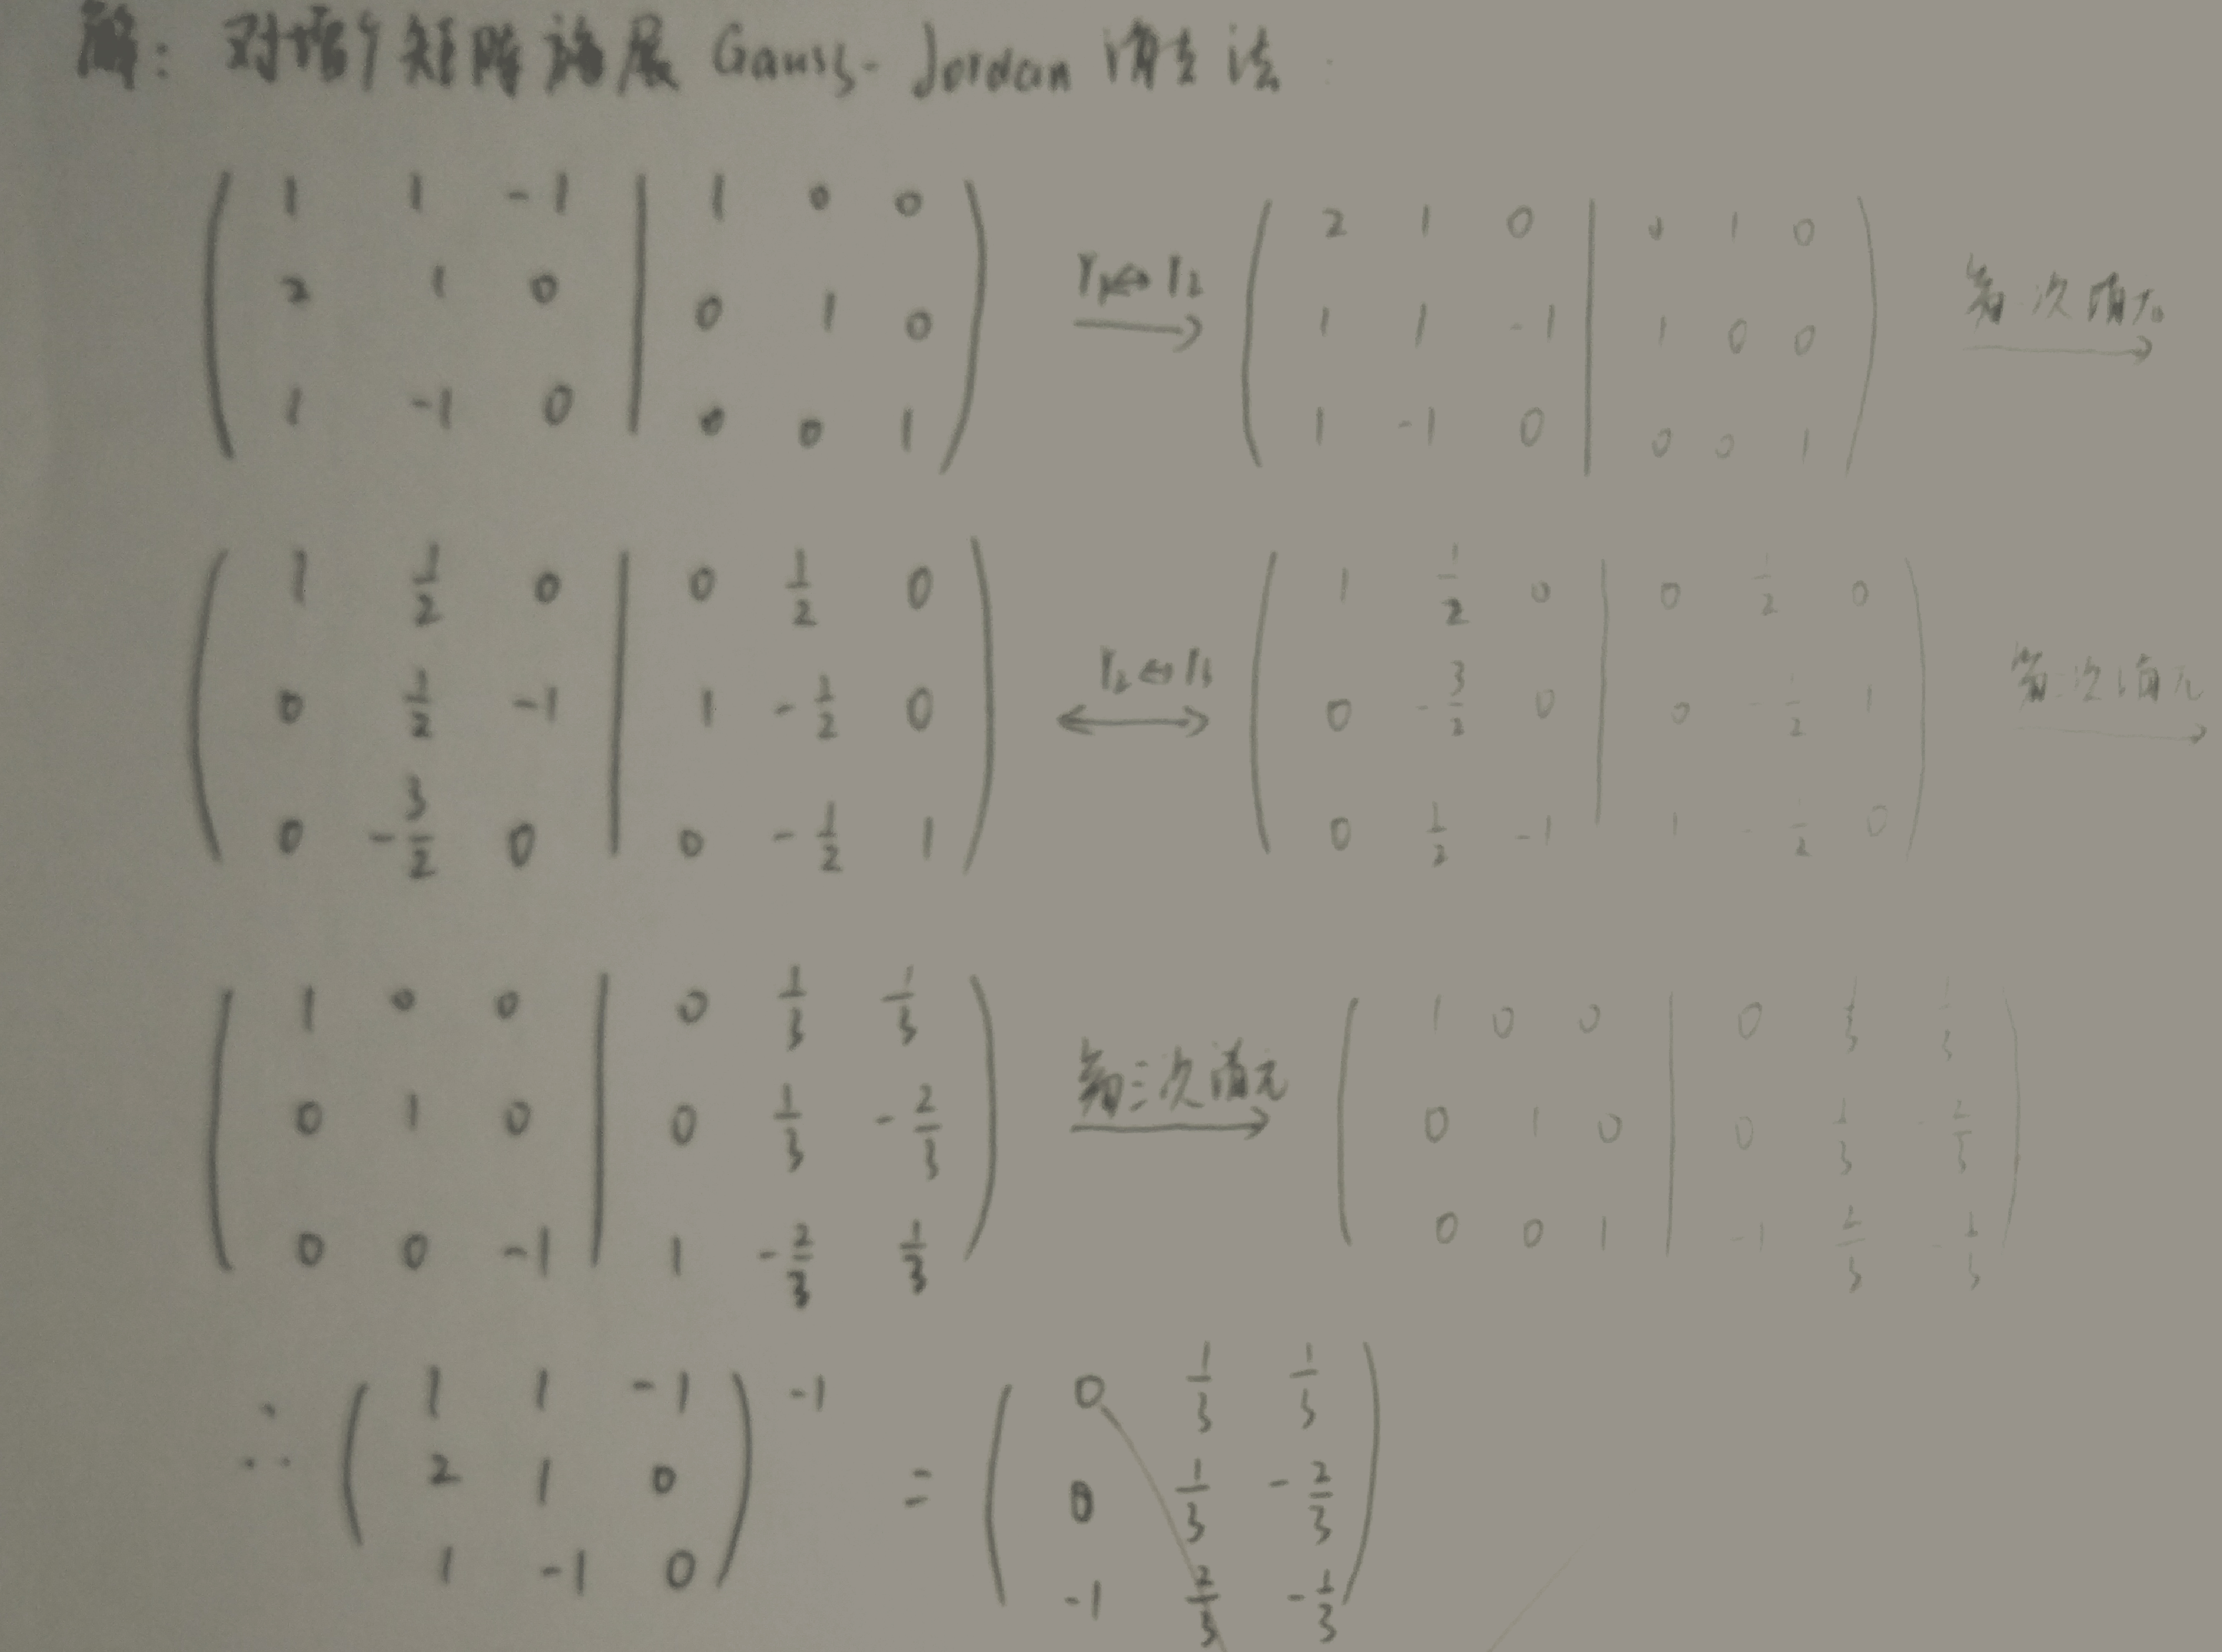 解：对增广矩阵施展 Gauss-Jordan 消去法：
( 1 1 -1 | 1 0 0 ; 2 1 0 | 0 1 0 ; 1 -1 0 | 0 0 1 ) r₁↔r₂ → ( 2 1 0 | 0 1 0 ; 1 1 -1 | 1 0 0 ; 1 -1 0 | 0 0 1 ) 第一次消元 →
( 1 1/2 0 | 0 1/2 0 ; 0 1/2 -1 | 1 -1/2 0 ; 0 -3/2 0 | 0 -1/2 1 ) r₂↔r₃ ⟷ ( 1 1/2 0 | 0 1/2 0 ; 0 -3/2 0 | 0 -1/2 1 ; 0 1/2 -1 | 1 -1/2 0 ) 第二次消元 →
( 1 0 0 | 0 1/3 1/3 ; 0 1 0 | 0 1/3 -2/3 ; 0 0 -1 | 1 -2/3 1/3 ) 第三次消元 → ( 1 0 0 | 0 1/3 1/3 ; 0 1 0 | 0 1/3 -2/3 ; 0 0 1 | -1 2/3 -1/3 )
∴ ( 1 1 -1 ; 2 1 0 ; 1 -1 0 )⁻¹ = ( 0 1/3 1/3 ; 0 1/3 -2/3 ; -1 2/3 -1/3 )